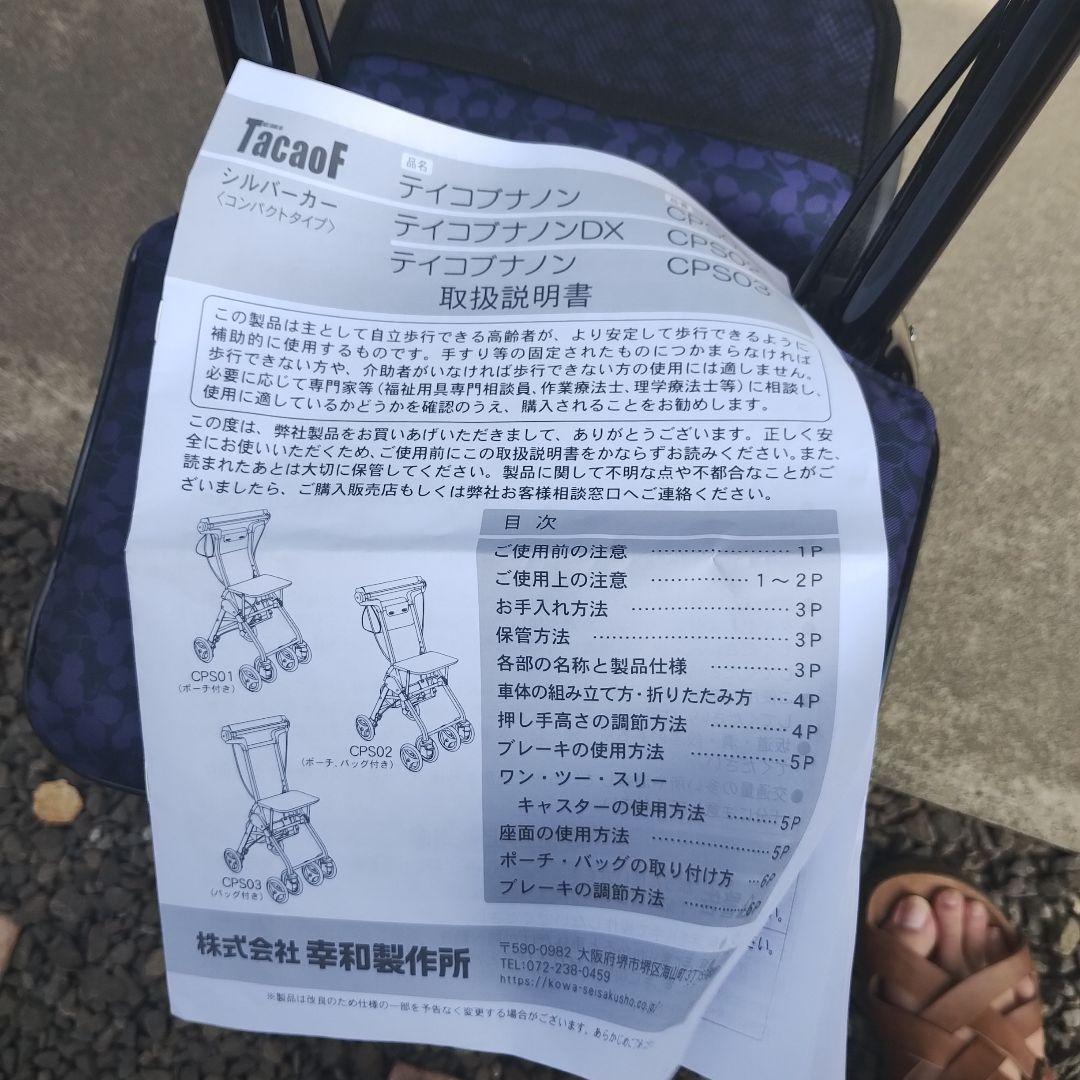 TacaoF
シルバーカー
〈コンパクトタイプ〉
品名
テイコブナノン
テイコブナノンDX CPS02
テイコブナノン CPS03
取扱説明書
この製品は主として自立歩行できる高齢者が、より安定して歩行できるように
補助的に使用するものです。手すり等の固定されたものにつかまらなければ
歩行できない方や、介助者がいなければ歩行できない方の使用には適しません。
必要に応じて専門家等(福祉用具専門相談員、作業療法士、理学療法士等)に相談し、
使用に適しているかどうかを確認のうえ、購入されることをお勧めします。
この度は、弊社製品をお買いあげいただきまして、ありがとうございます。正しく安
全にお使いいただくため、ご使用前にこの取扱説明書をかならずお読みください。また、
読まれたあとは大切に保管してください。製品に関して不明な点や不都合なことがご
ざいましたら、ご購入販売店もしくは弊社お客様相談窓口へご連絡ください。
CPS01
(ポーチ付き)
CPS02
(ポーチ、バッグ付き)
CPS03
(バッグ付き)
目次
ご使用前の注意 ………………… 1P
ご使用上の注意 …………… 1〜2P
お手入れ方法 …………………… 3P
保管方法 ………………………… 3P
各部の名称と製品仕様 ………… 3P
車体の組み立て方・折りたたみ方 … 4P
押し手高さの調節方法 ………… 4P
ブレーキの使用方法 …………… 5P
ワン・ツー・スリー
キャスターの使用方法 ……… 5P
座面の使用方法 ………………… 5P
ポーチ・バッグの取り付け方 … 6P
ブレーキの調節方法 ………… 6P
株式会社 幸和製作所
〒590-0982 大阪府堺市堺区海山町3丁
TEL:072-238-0459
https://kowa-seisakusho.co.jp/
※製品は改良のため仕様の一部を予告なく変更する場合がございます。あらかじめご